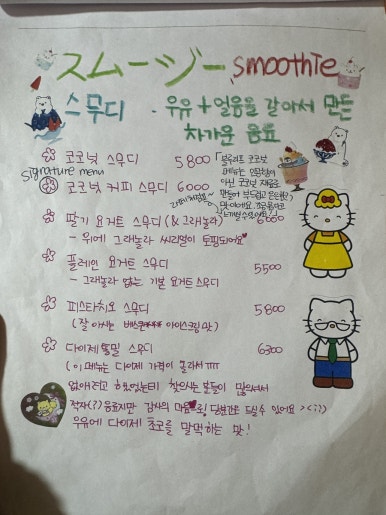 スムージー smoothie
스무디 - 우유 + 얼음을 갈아서 만든
차가운 음료
코코넛 스무디 5800
signature menu
코코넛 커피 스무디 6000
딸기 요거트 스무디 (& 그래놀라) 6000
- 위에 그래놀라 씨리얼이 토핑되어요
플레인 요거트 스무디 5500
- 그래놀라 없는 기본 요거트 스무디
피스타치오 스무디 5800
(잘 아시는 아이스크림 맛)
다이제 통밀 스무디 6300
(이 메뉴는 다이제 가격이 올라서 ㅠㅠ
없애려고 했었는데 찾으시는 분들이 많으셔서
적자(?) 음료지만 감사의 마음으로!
우유에 다이제 초코를 말먹하는 맛!